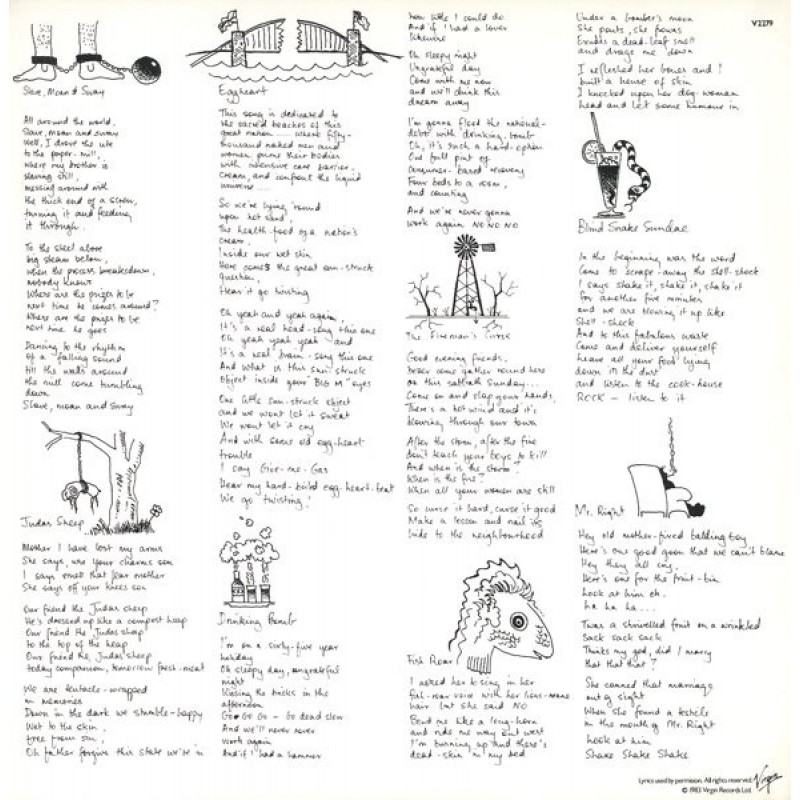 Slave, Moan & Sway
All around the world,
Slave, moan and sway
Well, I drove the ute
to the paper-mill,
where my brother is
slaving still,
messing around with
the thick end of a screw,
turning it and feeding
it through.
To the steel above
big steam below,
when the process breaks down,
nobody knows
Where are the prizes to be
next time he comes around?
Where are the prizes to be
next time he goes
Dancing to the rhythm
of a falling sound
till the walls around
the mill come tumbling
down
Slave, moan and Sway
Judas Sheep
Mother I have lost my arms
She says, use your charms son
I says smell that fear mother
She says off your knees son
Our friend the Judas sheep
He's dressed up like a compost heap
Our friend the Judas sheep
to the top of the heap
Our friend the Judas sheep
today companion, tomorrow fresh-meat
We are tentacle-wrapped
in memories
Down in the dark we stumble-happy
Wet to the skin,
free from sin,
Oh father forgive this state we're in
Eggheart
This song is dedicated to
the sacred beaches of this
great nation ..... where fifty-
thousand naked men and
women prime their bodies
with intensive care barrier-
cream, and confront the liquid
universe ....
So we're lying 'round
upon hot sand,
The health-food of a nation's
cream,
Inside our wet skin
Here comes the great sun-struck
question,
Hear it go twisting
Oh yeah and yeah again,
It's a real head-song this one
Oh yeah yeah yeah and
It's a real brain-song this one
And what is this sun-struck
object inside your "Big M" eyes
One little sun-struck object
and we wont let it sweat
We wont let it cry
And with some old egg-heart-
trouble
I say Give-me-Gas
Hear my hard-boiled egg-heart-beat
We go twisting!
Drinking Bomb
I'm on a sixty-five year
holiday
Oh sleepy day, ungrateful
night
Kissing the bricks in the
afternoon
Go Go Go - Go dead slow
And we'll never never
work again
And if I had a hammer
how little I could do
And if I had a lover
likewise
Oh sleepy night
Ungrateful day
Come with me now
and we'll drink this
dream away
I'm gonna flood the national-
debt with drinking-bomb
Oh, it's such a hard-option
One full pint of
consumer-based recovery
Four beds to a room,
and counting
And we're never gonna
work again NO NO NO
The Fireman's Curse
Good evening friends,
come gather round here
on this sabbath Sunday...
Come on and slap your hands,
There's a hot wind and it's
blowing through our town
After the storm, after the fire
don't teach your boys to kill
And when is the storm?
When is the fire?
When all your women are still
So curse it hard, curse it good
Make a lesson and nail its
hide to the neighbourhood
Fish Roar
I asked her to sing in her
fish-roar voice with her lions-mane
hair but she said NO
Bend me like a long-horn
and ride me way out west
I'm burning up and there's
dead-skin in my bed
Under a bomber's moon
She pouts, she frowns
Exhales a dead-leaf smell
and drags me down
I refleshed her bones and I
built a house of skin
I knocked upon her dog-woman
head and let some humour in
Blind Snake Sundae
In the beginning was the word
Come to scrape-away the shell-shock
I says shake it, shake it, shake it
for another five minutes
and we are blowing it up like
Shell-shock
And to this fabulous waste
Come and deliver yourself
heave all your food lying
down in the dust
and listen to the cook-house
ROCK - listen to it
Mr. Right
Hey old mother-fired balding boy
Here's one good goon that we can't blame
Hey they all cry,
Here's one for the fruit-bin
Look at him eh.
ha ha ha...
Twas a shrivelled fruit on a wrinkled
sack sack sack
Thinks my god, did I marry
that that thing?
She canned that marriage
out of sight
When she found a testicle
in the mouth of Mr. Right
Look at him
Shake Shake Shake
V2279
Lyrics used by permission. All rights reserved.
© 1983 Virgin Records Ltd.
Virgin